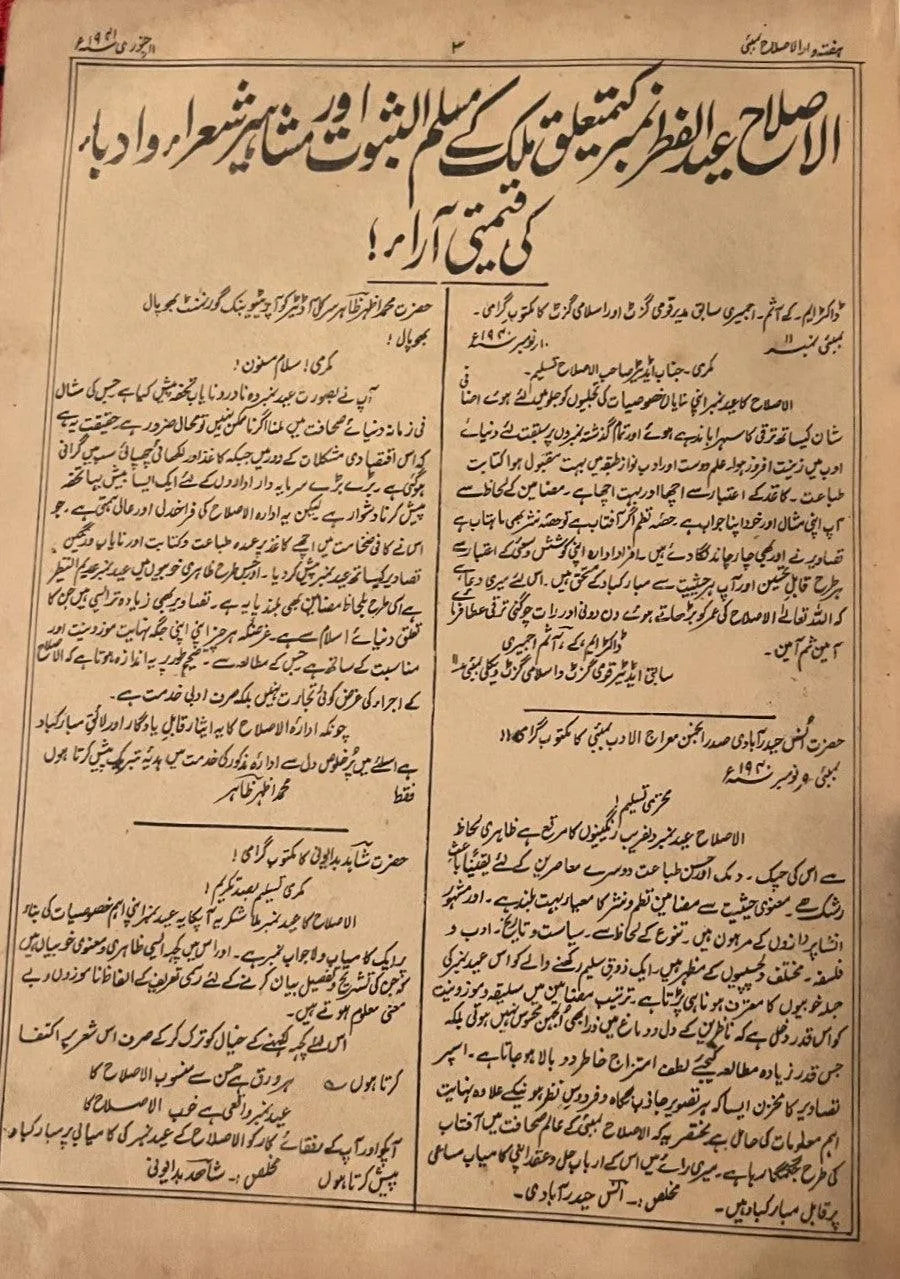 ہفتہ وار الاصلاح بمبئی
۳
۱۱ جنوری ۱۹۴۱ء
الاصلاح عید الفطر نمبر کے متعلق ملک کے مسلم الثبوت اور مشاہیر شعراء و ادباء
کی قیمتی آراء!
ڈاکٹر ایم۔ کے آثم۔ اجمیری سابق مدیر قومی گزٹ اور اسلامی گزٹ کا مکتوب گرامی۔
بمبئی نمبر ۱۱
۱۰ نومبر ۱۹۴۰ء
مکرمی۔ جناب ایڈیٹر صاحب الاصلاح تسلیم۔
الاصلاح کا عید نمبر اپنی نمایاں خصوصیات کی تجلیوں کو جلو میں لئے ہوئے اضافی
شان کیساتھ ترقی کا سہرا باندھے ہوئے اور تمام گذشتہ نمبروں پر سبقت لئے دنیائے
ادب میں زینت افروز ہوا۔ علم دوست اور ادب نواز طبقہ میں بہت مقبول ہوا کتابت
طباعت۔ کاغذ کے اعتبار سے اچھا اور بہت اچھا ہے۔ مضامین کے لحاظ سے
آپ اپنی مثال اور خود اپنا جواب ہے۔ حصہ نظم اگر آفتاب ہے تو حصہ نثر بھی ماہتاب ہے
تصاویر نے اور بھی چار چاند لگا دئے ہیں۔ افراد ادارہ اپنی کوشش و سعی کے اعتبار سے
ہر طرح قابل تحسین اور آپ ہر حیثیت سے مبارکباد کے مستحق ہیں۔ اس لئے میری دعا ہے
کہ اللہ تعالےٰ الاصلاح کی عمر کو بڑھاتے ہوئے دن دونی اور رات چوگنی ترقی عطا فرمائے
آمین ثم آمین۔
ڈاکٹر ایم، کے، آثم اجمیری
سابق ایڈیٹر قومی گزٹ و اسلامی گزٹ ویکلی بمبئی ۱۱
حضرت انس حیدرآبادی صدر انجمن معراج الادب بمبئی کا مکتوب گرامی
بمبئی ۹ نومبر ۱۹۴۰ء
محترمی تسلیم!
الاصلاح عید نمبر دلفریب رنگینیوں کا مرقع ہے ظاہری لحاظ
سے اس کی چمک۔ دمک اور حسن طباعت دوسرے معاصرین کے لئے یقیناً باعث
رشک ہے۔ معنوی حیثیت سے مضامین نظم و نثر کا معیار بہت بلند ہے۔ اور مشہور
انشا پردازوں کے مرہون ہیں۔ تنوع کے لحاظ سے۔ سیاست و تاریخ۔ ادب و
فلسفہ۔ مختلف دلچسپیوں کے مظہر ہیں۔ ایک ذوق سلیم رکھنے والے کو اس عید نمبر کی
جملہ خوبیوں کا معترف ہونا ہی پڑتا ہے۔ ترتیب مضامین میں سلیقہ و موزونیت
کو اس قدر دخل ہے کہ ناظرین کے دل و دماغ میں ذرا بھی الجھن محسوس نہیں ہوتی بلکہ
جس قدر زیادہ مطالعہ کیجئے لطف امتزاج خاطر دو بالا ہو جاتا ہے۔ اسپر
تصاویر کا مخزن ایسا کہ ہر تصویر جاذب نگاہ و فردوس نظر ہونیکے علاوہ نہایت
اہم معلومات کی حامل ہے مختصر یہ کہ الاصلاح بمبئی کے عالم صحافت میں آفتاب
کی طرح جگمگا رہا ہے۔ میری رائے میں اس کے ارباب حل و عقد اپنی کامیاب مساعی
پر قابل مبارکباد ہیں۔
مخلص:۔ انس حیدرآبادی۔
حضرت محمد اظہر ظاہر سرکل آڈیٹر کوآپریٹیو بنک گورنمنٹ بھوپال
بھوپال!
مکرمی! سلام مسنون!
آپ نے بصورت عید نمبر وہ نادر و نایاب تحفہ پیش کیا ہے جس کی مثال
فی زمانہ دنیائے صحافت میں ملنا اگر ناممکن نہیں تو محال ضرور ہے حقیقت یہ ہے
کہ اس اقتصادی مشکلات کے دور میں جبکہ کاغذ اور لکھائی چھپائی سب میں گرانی
ہو گئی ہے۔ بڑے بڑے سرمایہ دار اداروں کے لئے ایک ایسا بیش بہا تحفہ
پیش کرنا دشوار ہے لیکن یہ ادارہ الاصلاح کی فراخدلی اور عالی ہمتی ہے۔ جو
اس نے کافی ضخامت میں اچھے کاغذ پر عمدہ طباعت و کتابت اور نایاب و رنگین
تصاویر کیساتھ عید نمبر پیش کر دیا۔ اور جس طرح ظاہری خوبیوں میں عید نمبر عدیم النظیر
ہے اسی طرح بلحاظ مضامین بھی بلند پایہ ہے۔ تصاویر بھی زیادہ تر ایسی ہیں جن کا
تعلق دنیائے اسلام سے ہے۔ غرضکہ ہر چیز اپنی اپنی جگہ نہایت موزونیت اور
مناسبت کے ساتھ ہے جس کے مطالعہ سے۔ صحیح طور پر یہ اندازہ ہوتا ہے کہ الاصلاح
کے اجراء کی غرض کوئی تجارت نہیں بلکہ صرف ادبی خدمت ہے۔
چونکہ ادارہ الاصلاح کا یہ ایثار قابل یادگار اور لائق مبارکباد
ہے اسلئے میں پرخلوص دل سے ادارہ مذکور کی خدمت میں ہدیہ تبریک پیش کرتا ہوں
فقط
محمد اظہر ظاہر
حضرت شاہد بدایونی کا مکتوب گرامی!
مکرمی تسلیم بصد تکریم!
الاصلاح کا عید نمبر ملا شکریہ آپکا یہ عید نمبر اپنی اہم خصوصیات کی بناء
پر ایک کامیاب و لاجواب نمبر ہے۔ اور اس میں کچھ ایسی ظاہری و معنوی خوبیاں ہیں
کہ جن کی تشریح و تفصیل بیان کرنے کے لئے رسمی تعریف کے الفاظ ناموزوں و بے
معنی معلوم ہوتے ہیں۔
اس لئے کچھ لکھنے کے خیال کو ترک کر کے صرف اس شعر پر اکتفا
کرتا ہوں ؎ ہر ورق ہے حسن سے منسوب الاصلاح کا
عید نمبر واقعی ہے خوب الاصلاح کا
آپکو اور آپ کے رفقائے کار کو الاصلاح کے عید نمبر کی کامیابی پر مبارکباد
پیش کرتا ہوں
مخلص:۔ شاہد بدایونی